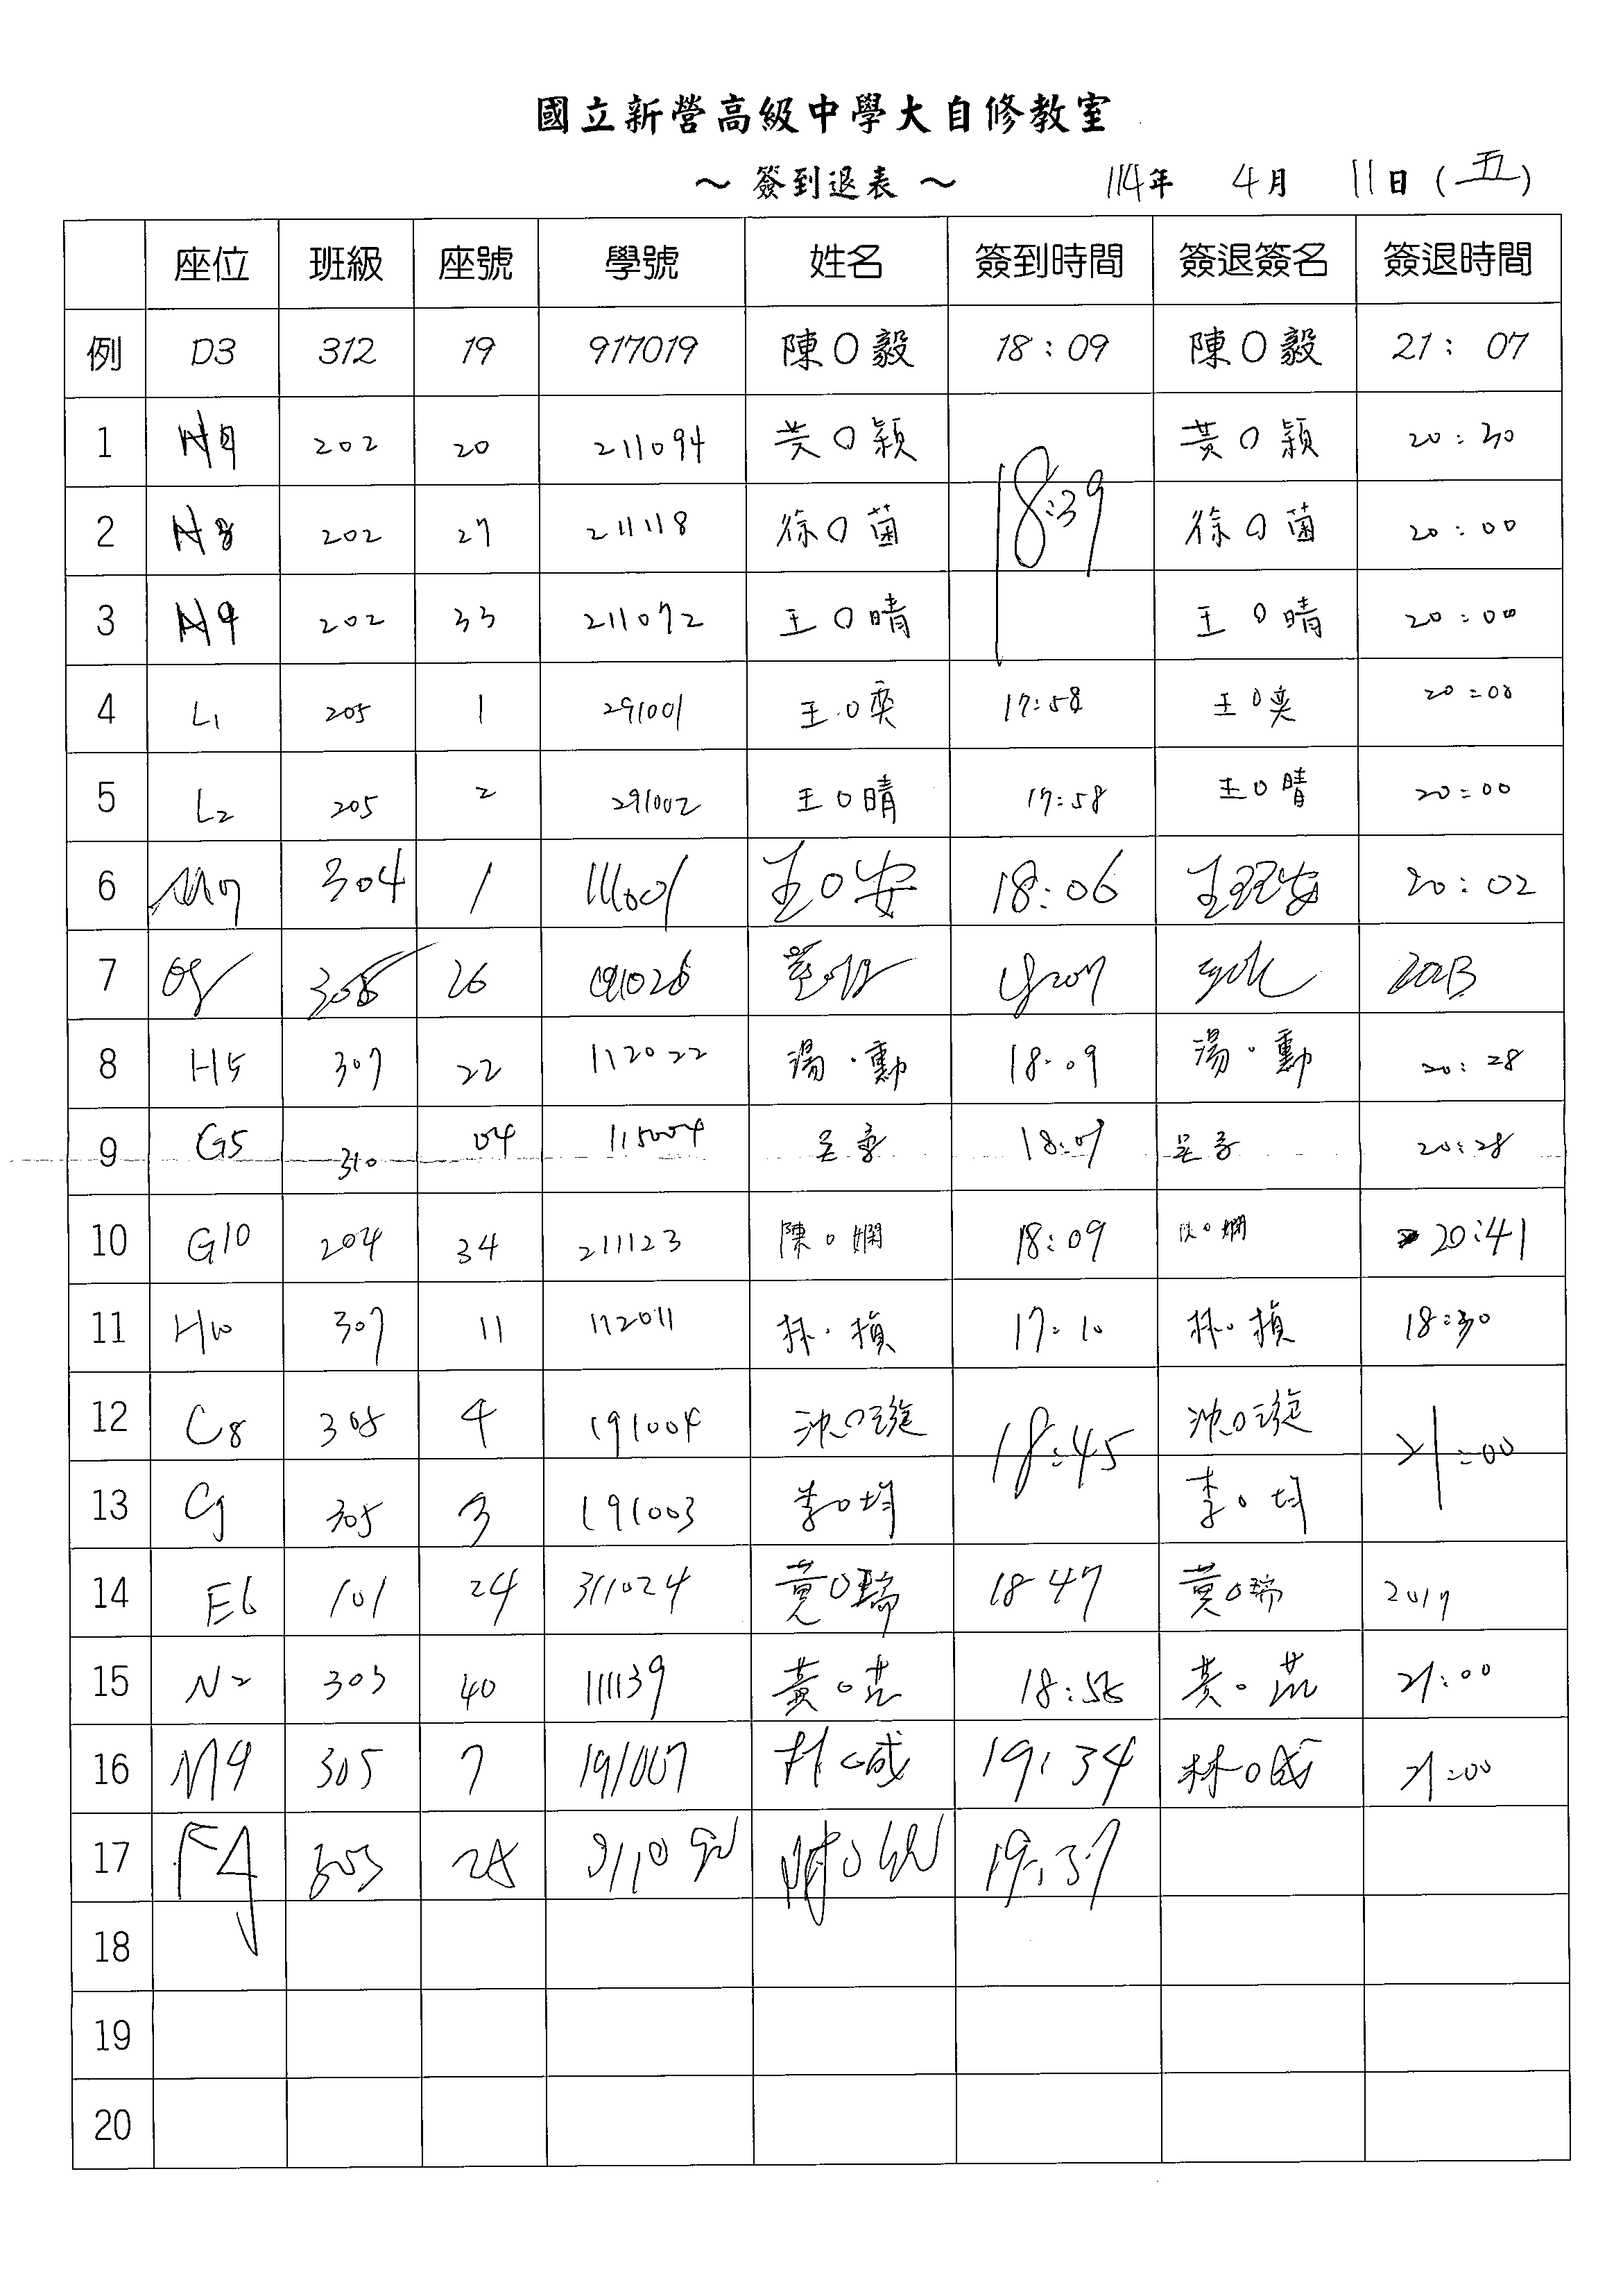 國立新營高級中學大自修教室
～ 簽到退表 ～ 114年 4月 11日(五)
座位 班級 座號 學號 姓名 簽到時間 簽退簽名 簽退時間
例 D3 312 19 917019 陳O毅 18:09 陳O毅 21:07
1 202 20 211094 黃O穎 18:39 黃O穎 20:30
2 N8 202 27 211118 徐O菌 徐O菌 20:00
3 N9 202 33 211072 王O晴 王O晴 20:00
4 L1 205 1 291001 王O奕 17:58 王O奕 20:00
5 L2 205 2 291002 王O晴 17:58 王O晴 20:00
6 M7 304 1 111001 王O安 18:06 20:02
7 26 191026
8 H5 307 22 112022 湯.勳 18:09 湯.勳 20:28
9 G5 310 04 115004 吳 18:07 吳 20:28
10 G10 204 34 211123 陳O嫻 18:09 陳O嫻 20:41
11 H10 307 11 112011 林.楨 17:10 林.楨 18:30
12 C8 305 4 191004 沈O璇 18:45 沈O璇 21:00
13 C9 305 3 191003 李O均 李O均
14 E6 101 24 311024 黃O瑞 18 47 黃O瑞 2017
15 N2 303 40 111139 黃O芸 18:56 黃O 21:00
16 M9 305 7 191007 林O 19:34 林O 21:00
17 303 28 19:37
18
19
20